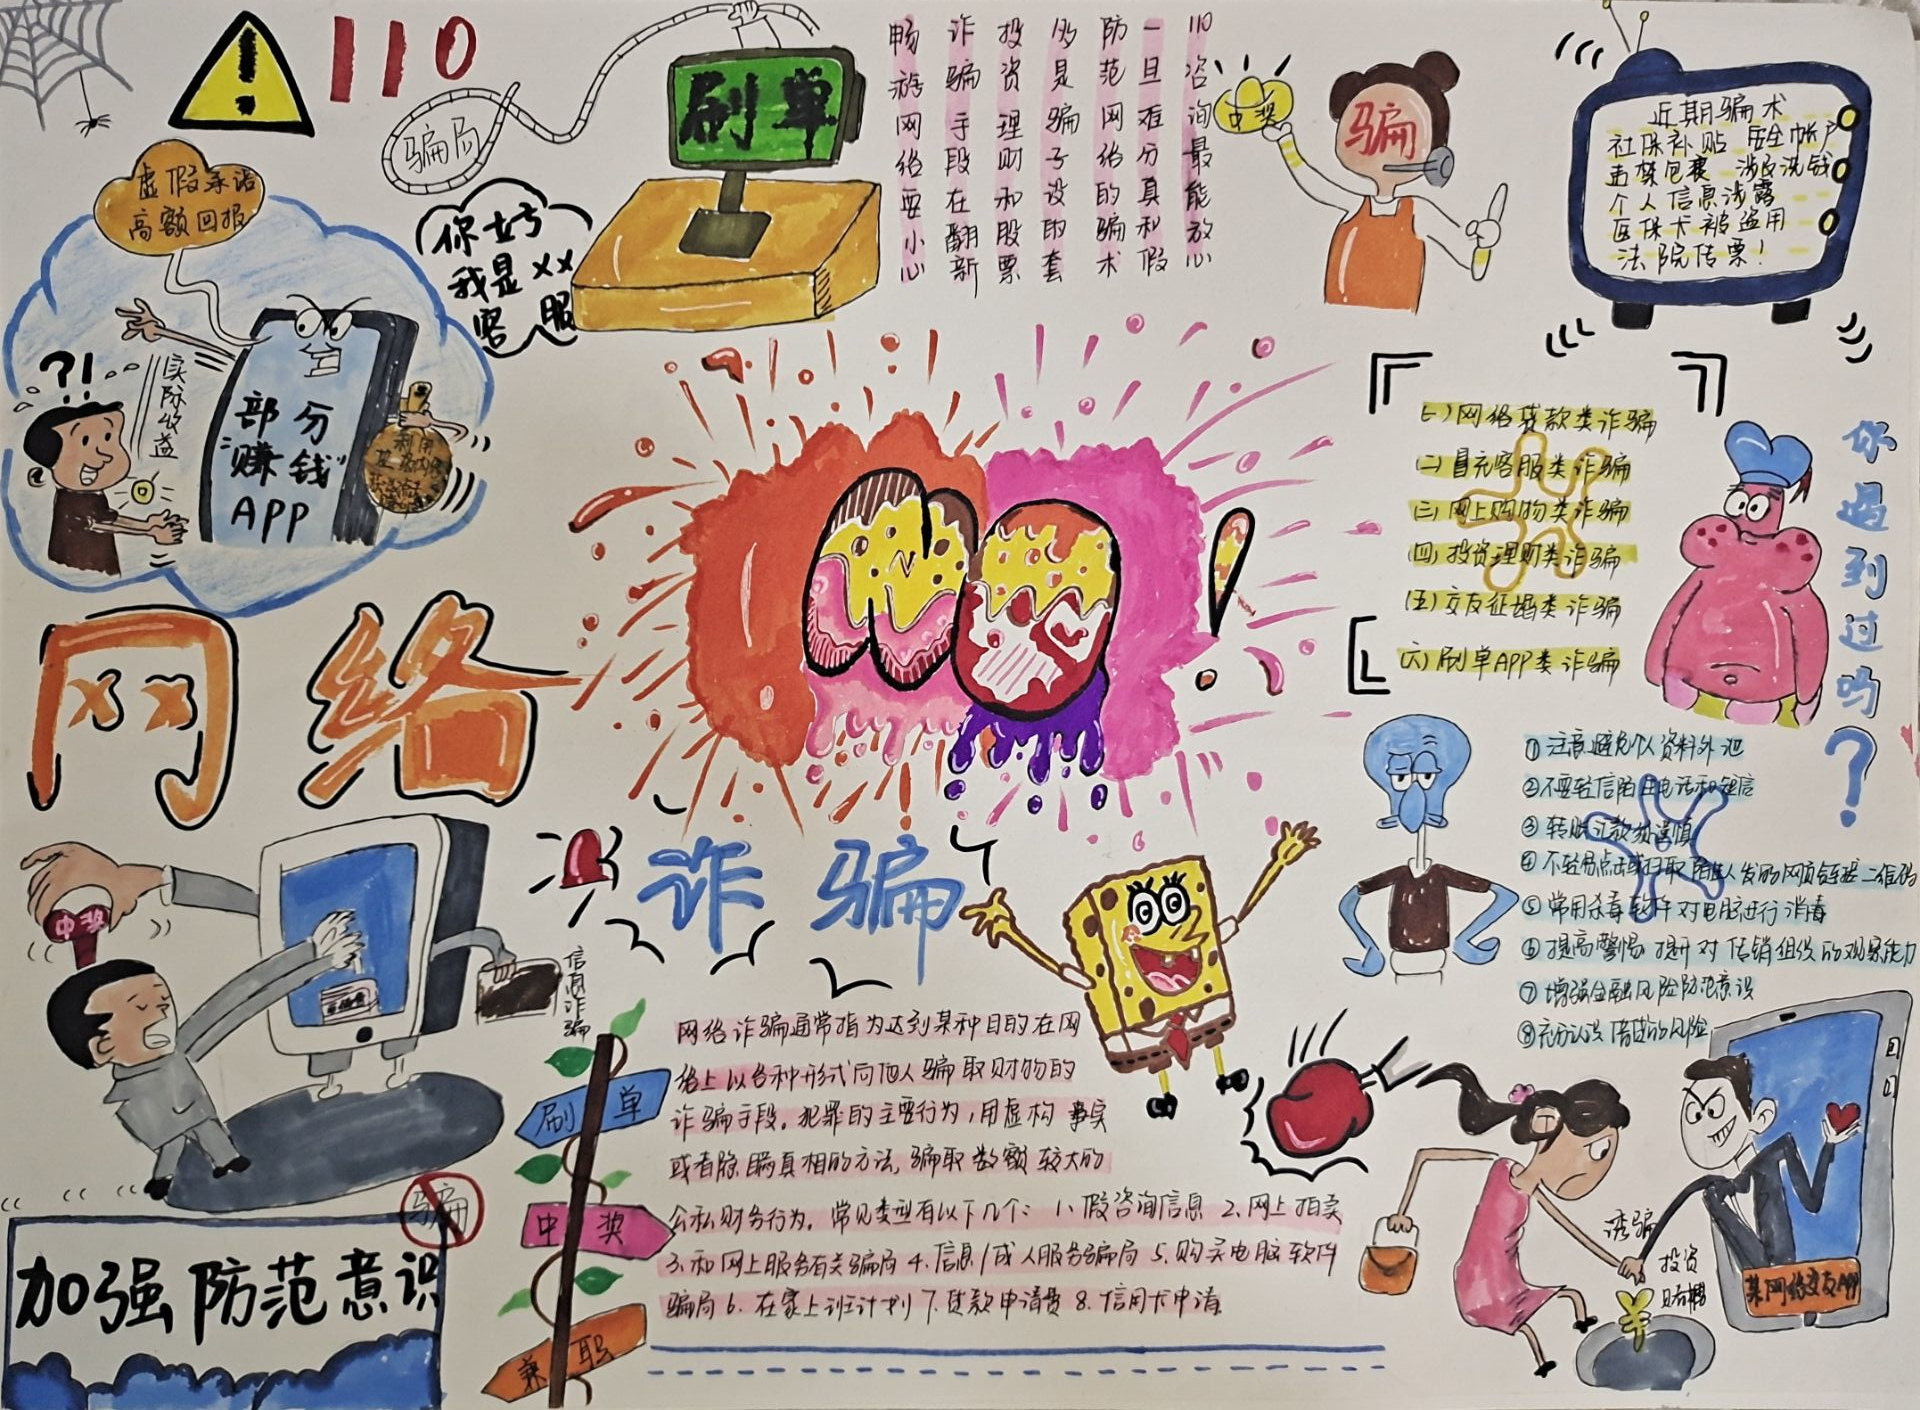 110
骗局
刷单
畅游网络要小心
诈骗手段在翻新
投资理财和股票
多是骗子设的套
防范网络的骗术
一旦难分真和假
110咨询最能放心
中奖
骗
近期骗术
社保补贴 安全帐户
违禁包裹 涉及洗钱
个人信息泄露
医保卡被盗用
法院传票!
虚假承诺
高额回报
你好
我是××
客服
?!
实际收益
部分
"赚钱"
APP
利用
NO!
(一)网络贷款类诈骗
(二)冒充客服类诈骗
(三)网上购物类诈骗
(四)投资理财类诈骗
(五)交友征婚类诈骗
(六)刷单APP类诈骗
你遇到过吗?
网络
诈骗
中奖
信息诈骗
①注意避免个人资料外泄
②不要轻信陌生电话和短信
③转账汇款须谨慎
④不轻易点击或扫取陌生人发的网页链接二维码
⑤常用杀毒软件对电脑进行消毒
⑥提高警惕 提升对传销组织的观察能力
⑦增强金融风险防范意识
⑧充分认识借贷的风险
网络诈骗通常指为达到某种目的在网
络上以各种形式向他人骗取财物的
诈骗手段。犯罪的主要行为,用虚构事实
或者隐瞒真相的方法,骗取数额较大的
公私财务行为。常见类型有以下几个: 1、假咨询信息 2、网上拍卖
3、和网上服务有关骗局 4、信息/成人服务骗局 5、购买电脑软件
骗局 6、在家上班计划 7、贷款申请费 8、信用卡申请
刷单
中奖
兼职
骗
加强防范意识
诱骗
投资
赌博
某网络交友APP